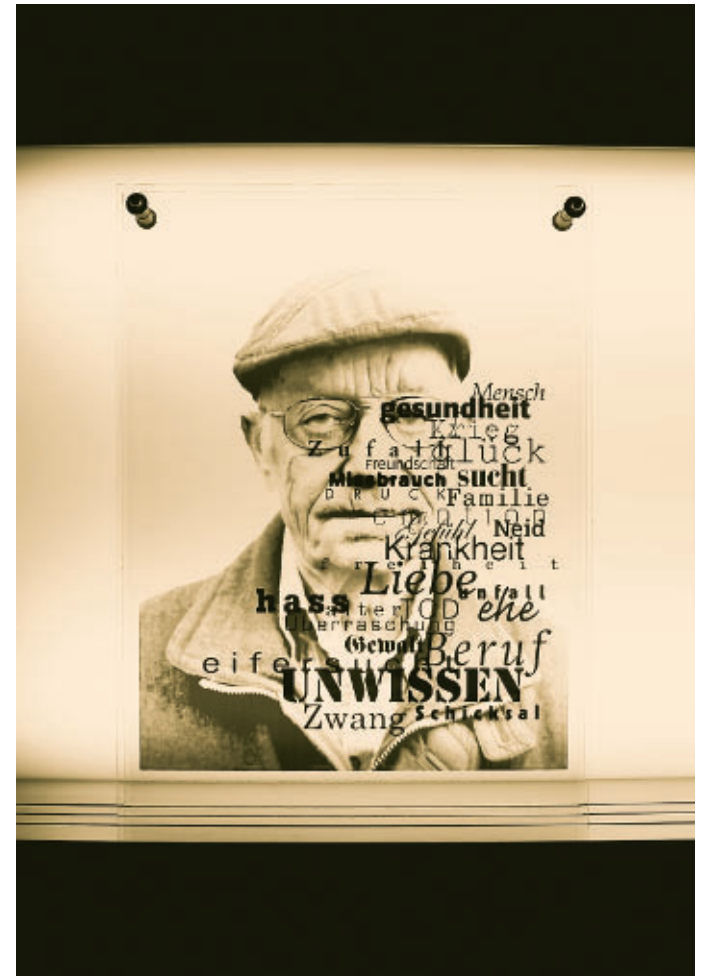 Mensch
gesundheit
Krieg
Zufall
glück
Freundschaft
Missbrauch sucht
DRUCK Familie
emotion
Gefühl Neid
Krankheit
freiheit
Liebe unfall
hass alter TOD ehe
Überraschung
Gewalt Beruf
eifersucht
UNWISSEN
Zwang Schicksal